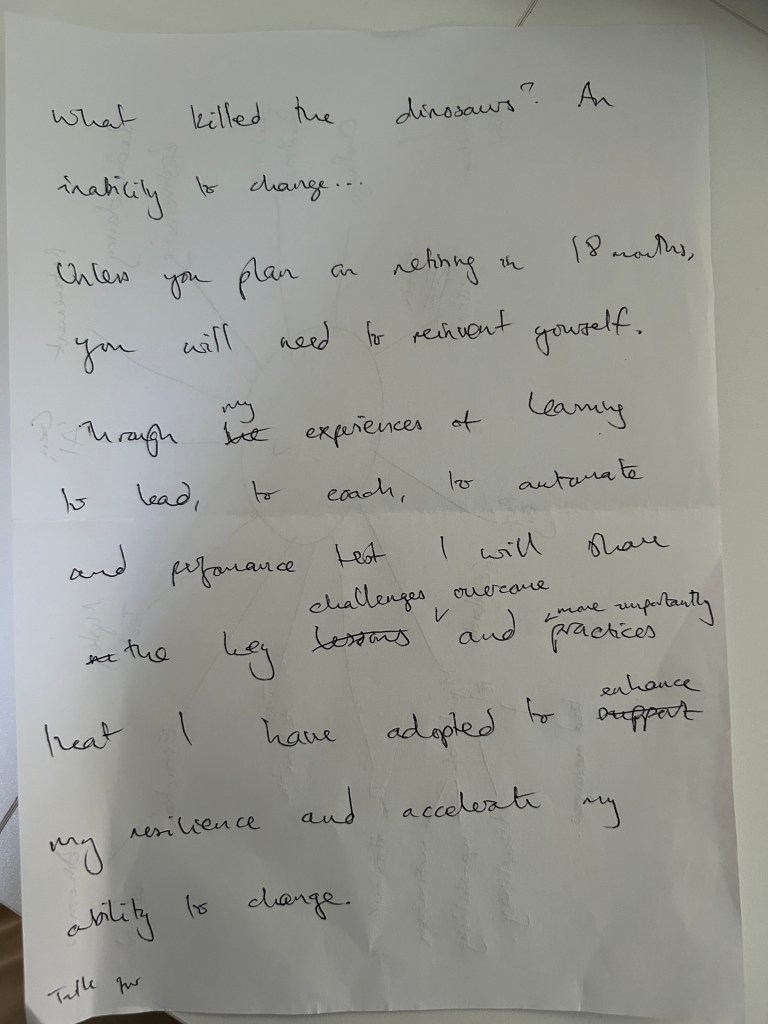 What killed the dinosaurs? An
inability to change...
Unless you plan on retiring in 18 months,
you will need to reinvent yourself.
my
Through experiences of learning
to lead, to coach, to automate
and perfomance test I will share
challenges overcome
more importantly
the key lessons and practices
enhance
that I have adopted to support
my resilience and accelerate my
ability to change.
Talk for